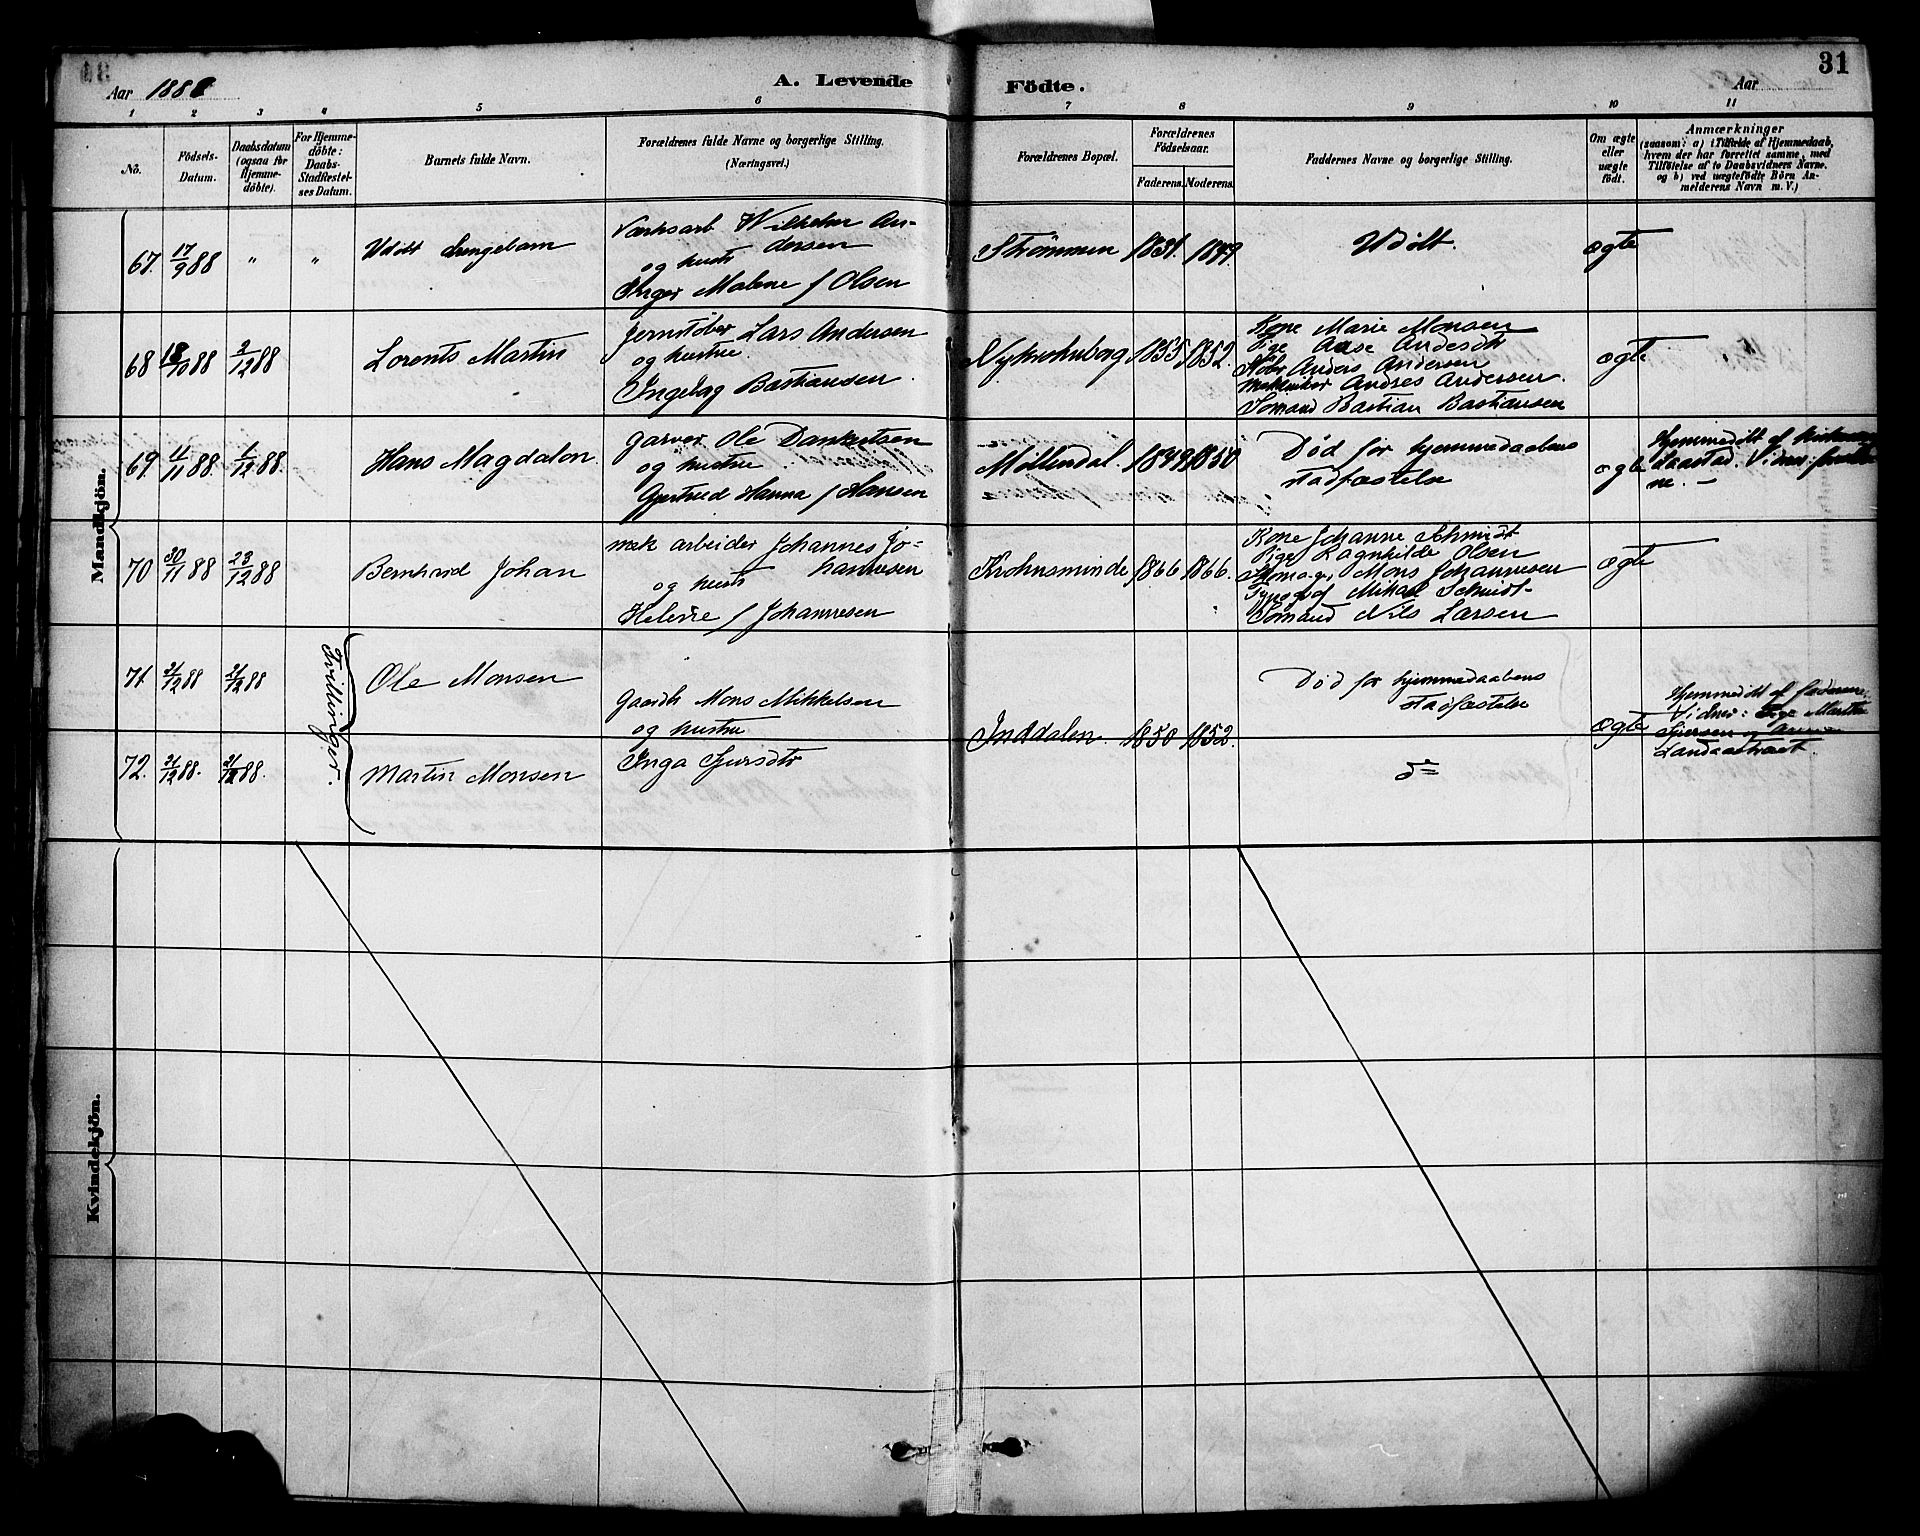 31
Aar 1888
A. Levende
Födte.
Aar
1 2 3 4 5 6 7 8 9 10 11
No.
Födsels-
Datum.
Daabsdatum
(ogsaa for
Hjemme-
döbte).
For Hjemme-
döbte:
Daabs-
Stadfæstel-
ses Datum.
Barnets fulde Navn.
Forældrenes fulde Navne og borgerlige Stilling.
(Næringsvei.)
Forældrenes Bopæl.
Forældrenes
Födselsaar.
Faderens. Moderens.
Faddernes Navne og borgerlige Stilling.
Om ægte
eller
uægte
födt.
Anmærkninger
(saasom: a) i Tilfælde af Hjemmedaab,
hvem der har forrettet samme, med
Tilföielse af to Daabsvidners Navne.
og b) ved uægtefödte Börn An-
melderens Navn m. V.)
Mandkjön.
67. 17/9 88 " " Udöbt
Værksarb Wilhelm An-
dersen
og hust
Inger Malene f Olsen
Strømmen 1831. 1849.
Udøbt.
ægte
68 18/10 88 2/12 88 Lorents Martin
Jernstøber Lars Andersen
og hustru
Ingeborg Bastiansen.
Nykrohnborg 1855 1852.
Kone Marie Monsen
Pige Aase Andersdtr
Støber Anders Andersen
Andreas Anderssen.
Sømand Bastian Bastiansen
ægte
69. 11/11 88. 1/12 88. Hans Magdalon.
garver Ole Dankertsen
og hustru
Gjertrud Hanna f Hansen
Møllendal. 1849 1850
Død før hjemmedaabens
stadfæstelse
ægte
Hjemmedøbt af
Laastad. Vidner:
ne. —
70 30/11 88 23/12 88 Bernhard Johan
mek arbeider Johannes Jo-
hannesen
og hust
Helene f Johannesen
Krohnsminde 1866 1866.
Kone Johanne Schmidt
Pige Ragnhilde Olsen
Mons Johannesen
Mikael Schmidt
Sømand Nils Larsen
ægte
Tvillinger.
71. 21/12 88 21/12 88 Ole Monsen
Gaardb Mons Mikkelsen
og hustru
Inga Sjursdtr
Inddalen. 1850 1852.
Død før hjemmedaabens
stadfæstelse
ægte
Hjemmedøbt af faderen.
Vidner: Pige Marthe
Sjursen og
Landaastræet.
72. 21/12 88. 21/12 88. Martin Monsen
do
Kvindekjön.